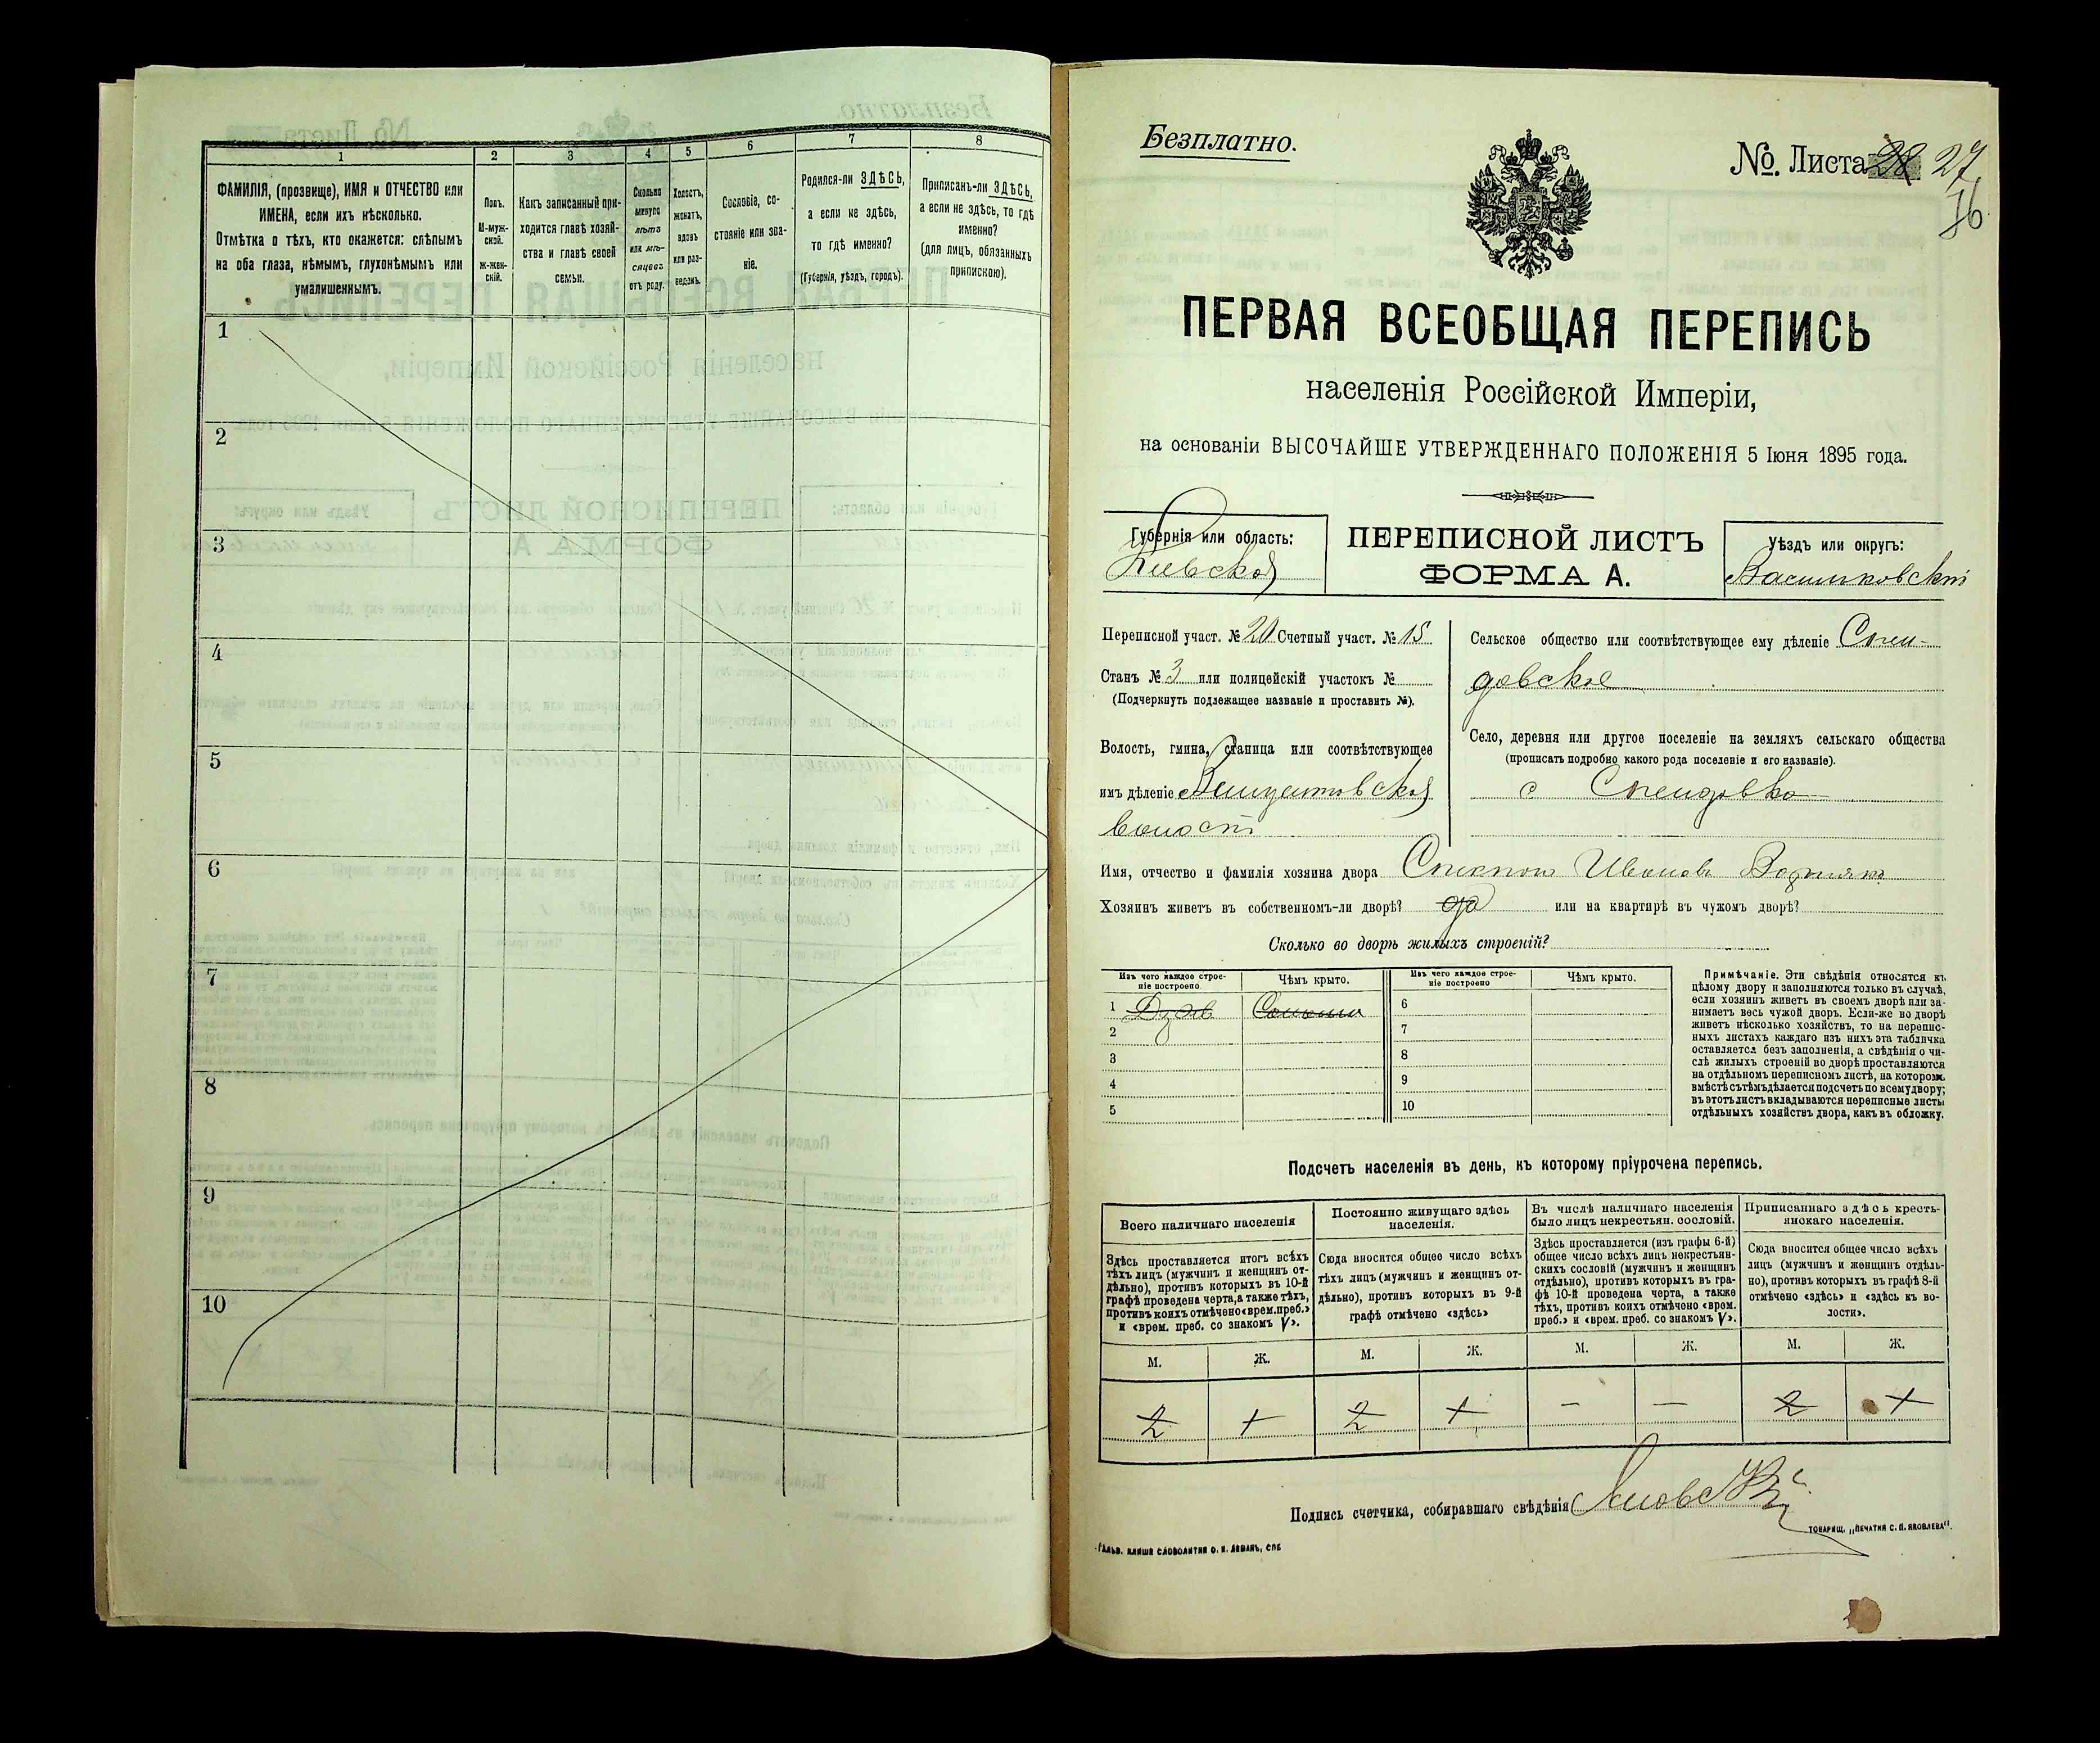 1
2
3
4
5
6
7
8
ФАМИЛІЯ, (прозвище), ИМЯ и ОТЧЕСТВО или
ИМЕНА, если ихъ нѣсколько.
Отмѣтка о тѣхъ, кто окажется: слѣпымъ
на оба глаза, нѣмымъ, глухонѣмымъ или
умалишеннымъ.
Полъ.
М-муж-
ской.
ж-жен-
скій.
Какъ записанный при-
ходится главѣ хозяй-
ства и главѣ своей
семьи.
Сколько
минуло
лѣтъ
или мѣ-
сяцевъ
отъ роду.
Холостъ,
женатъ,
вдовъ
или раз-
веденъ.
Сословіе, со-
стояніе или зва-
ніе.
Родился-ли ЗДѢСЬ,
а если не здѣсь,
то гдѣ именно?
(Губернія, уѣздъ, городъ).
Приписанъ-ли ЗДѢСЬ,
а если не здѣсь, то гдѣ
именно?
(для лицъ, обязанныхъ
припискою).
1
2
3
4
5
6
7
8
9
10
Безплатно.
№. Листа 28 27
76
ПЕРВАЯ ВСЕОБЩАЯ ПЕРЕПИСЬ
населенія Россійской Имперіи,
на основаніи ВЫСОЧАЙШЕ УТВЕРЖДЕННАГО ПОЛОЖЕНІЯ 5 Іюня 1895 года.
Губернія или область:
Кіевская
ПЕРЕПИСНОЙ ЛИСТЪ
ФОРМА А.
Уѣздъ или округъ:
Васильковскій
Переписной участ. № 20 Счетный участ. № 15
Станъ № 3 или полицейскій участокъ №
(Подчеркнуть подлежащее названіе и проставить №).
Волость, гмина, станица или соотвѣтствующее
имъ дѣленіе Винцентовская
волость
Сельское общество или соотвѣтствующее ему дѣленіе Спен-
довское
Село, деревня или другое поселеніе на земляхъ сельскаго общества
(прописать подробно какого рода поселеніе и его названіе).
с Спендовка
Имя, отчество и фамилія хозяина двора Иванов
Хозяинъ живетъ въ собственномъ-ли дворѣ? да или на квартирѣ въ чужомъ дворѣ?
Сколько во дворѣ жилыхъ строеній?
Изъ чего каждое строе-
ніе построено
Чѣмъ крыто.
Изъ чего каждое строе-
ніе построено
Чѣмъ крыто.
1 Дерев Солома
2
3
4
5
6
7
8
9
10
Примѣчаніе. Эти свѣдѣнія относятся къ
цѣлому двору и заполняются только въ случаѣ,
если хозяинъ живетъ въ своемъ дворѣ или за-
нимаетъ весь чужой дворъ. Если-же во дворѣ
живетъ нѣсколько хозяйствъ, то на перепис-
ныхъ листахъ каждаго изъ нихъ эта табличка
оставляется безъ заполненія, а свѣдѣнія о чи-
слѣ жилыхъ строеній во дворѣ проставляются
на отдѣльномъ переписномъ листѣ, на которомъ
вмѣстѣ съ тѣмъ дѣлается подсчетъ по всему двору;
въ этотъ листъ вкладываются переписные листы
отдѣльныхъ хозяйствъ двора, какъ въ обложку.
Подсчетъ населенія въ день, къ которому пріурочена перепись.
Всего наличнаго населенія
Здѣсь проставляется итогъ всѣхъ
тѣхъ лицъ (мужчинъ и женщинъ от-
дѣльно), противъ которыхъ въ 10-й
графѣ проведена черта, а также тѣхъ,
противъ коихъ отмѣчено «врем. преб.»
и «врем. преб. со знакомъ V».
Постоянно живущаго здѣсь
населенія.
Сюда вносится общее число всѣхъ
тѣхъ лицъ (мужчинъ и женщинъ от-
дѣльно), противъ которыхъ въ 9-й
графѣ отмѣчено «здѣсь»
Въ числѣ наличнаго населенія
было лицъ некрестьян. сословій.
Здѣсь проставляется (изъ графы 6-й)
общее число всѣхъ лицъ некрестьян-
скихъ сословій (мужчинъ и женщинъ
отдѣльно), противъ которыхъ въ гра-
фѣ 10-й проведена черта, а также
тѣхъ, противъ коихъ отмѣчено «врем.
преб.» и «врем. преб. со знакомъ V».
Приписаннаго здѣсь кресть-
янскаго населенія.
Сюда вносится общее число всѣхъ
лицъ (мужчинъ и женщинъ отдѣль-
но), противъ которыхъ въ графѣ 8-й
отмѣчено «здѣсь» и «здѣсь къ во-
лости».
М. Ж. М. Ж. М. Ж. М. Ж.
2 1 2 1 — — 2 1
Подпись счетчика, собиравшаго свѣдѣнія
ТОВАРИЩ. „ПЕЧАТНЯ С. П. ЯКОВЛЕВА".
ГАЛЬВ. КЛИШЕ СЛОВОЛИТНИ О. И. ЛЕМАНЪ, СПБ